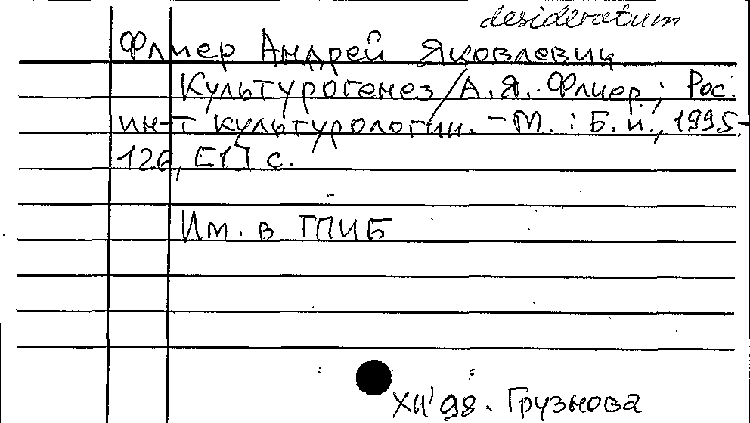 desideratum
Флиер Андрей Яковлевич
Культурогенез / А.Я. Флиер ; Рос.
ин-т культурологии. - М. : Б.и., 1995.-
126, [1] с.
Им. в ГПИБ
XII'98. Грузнова